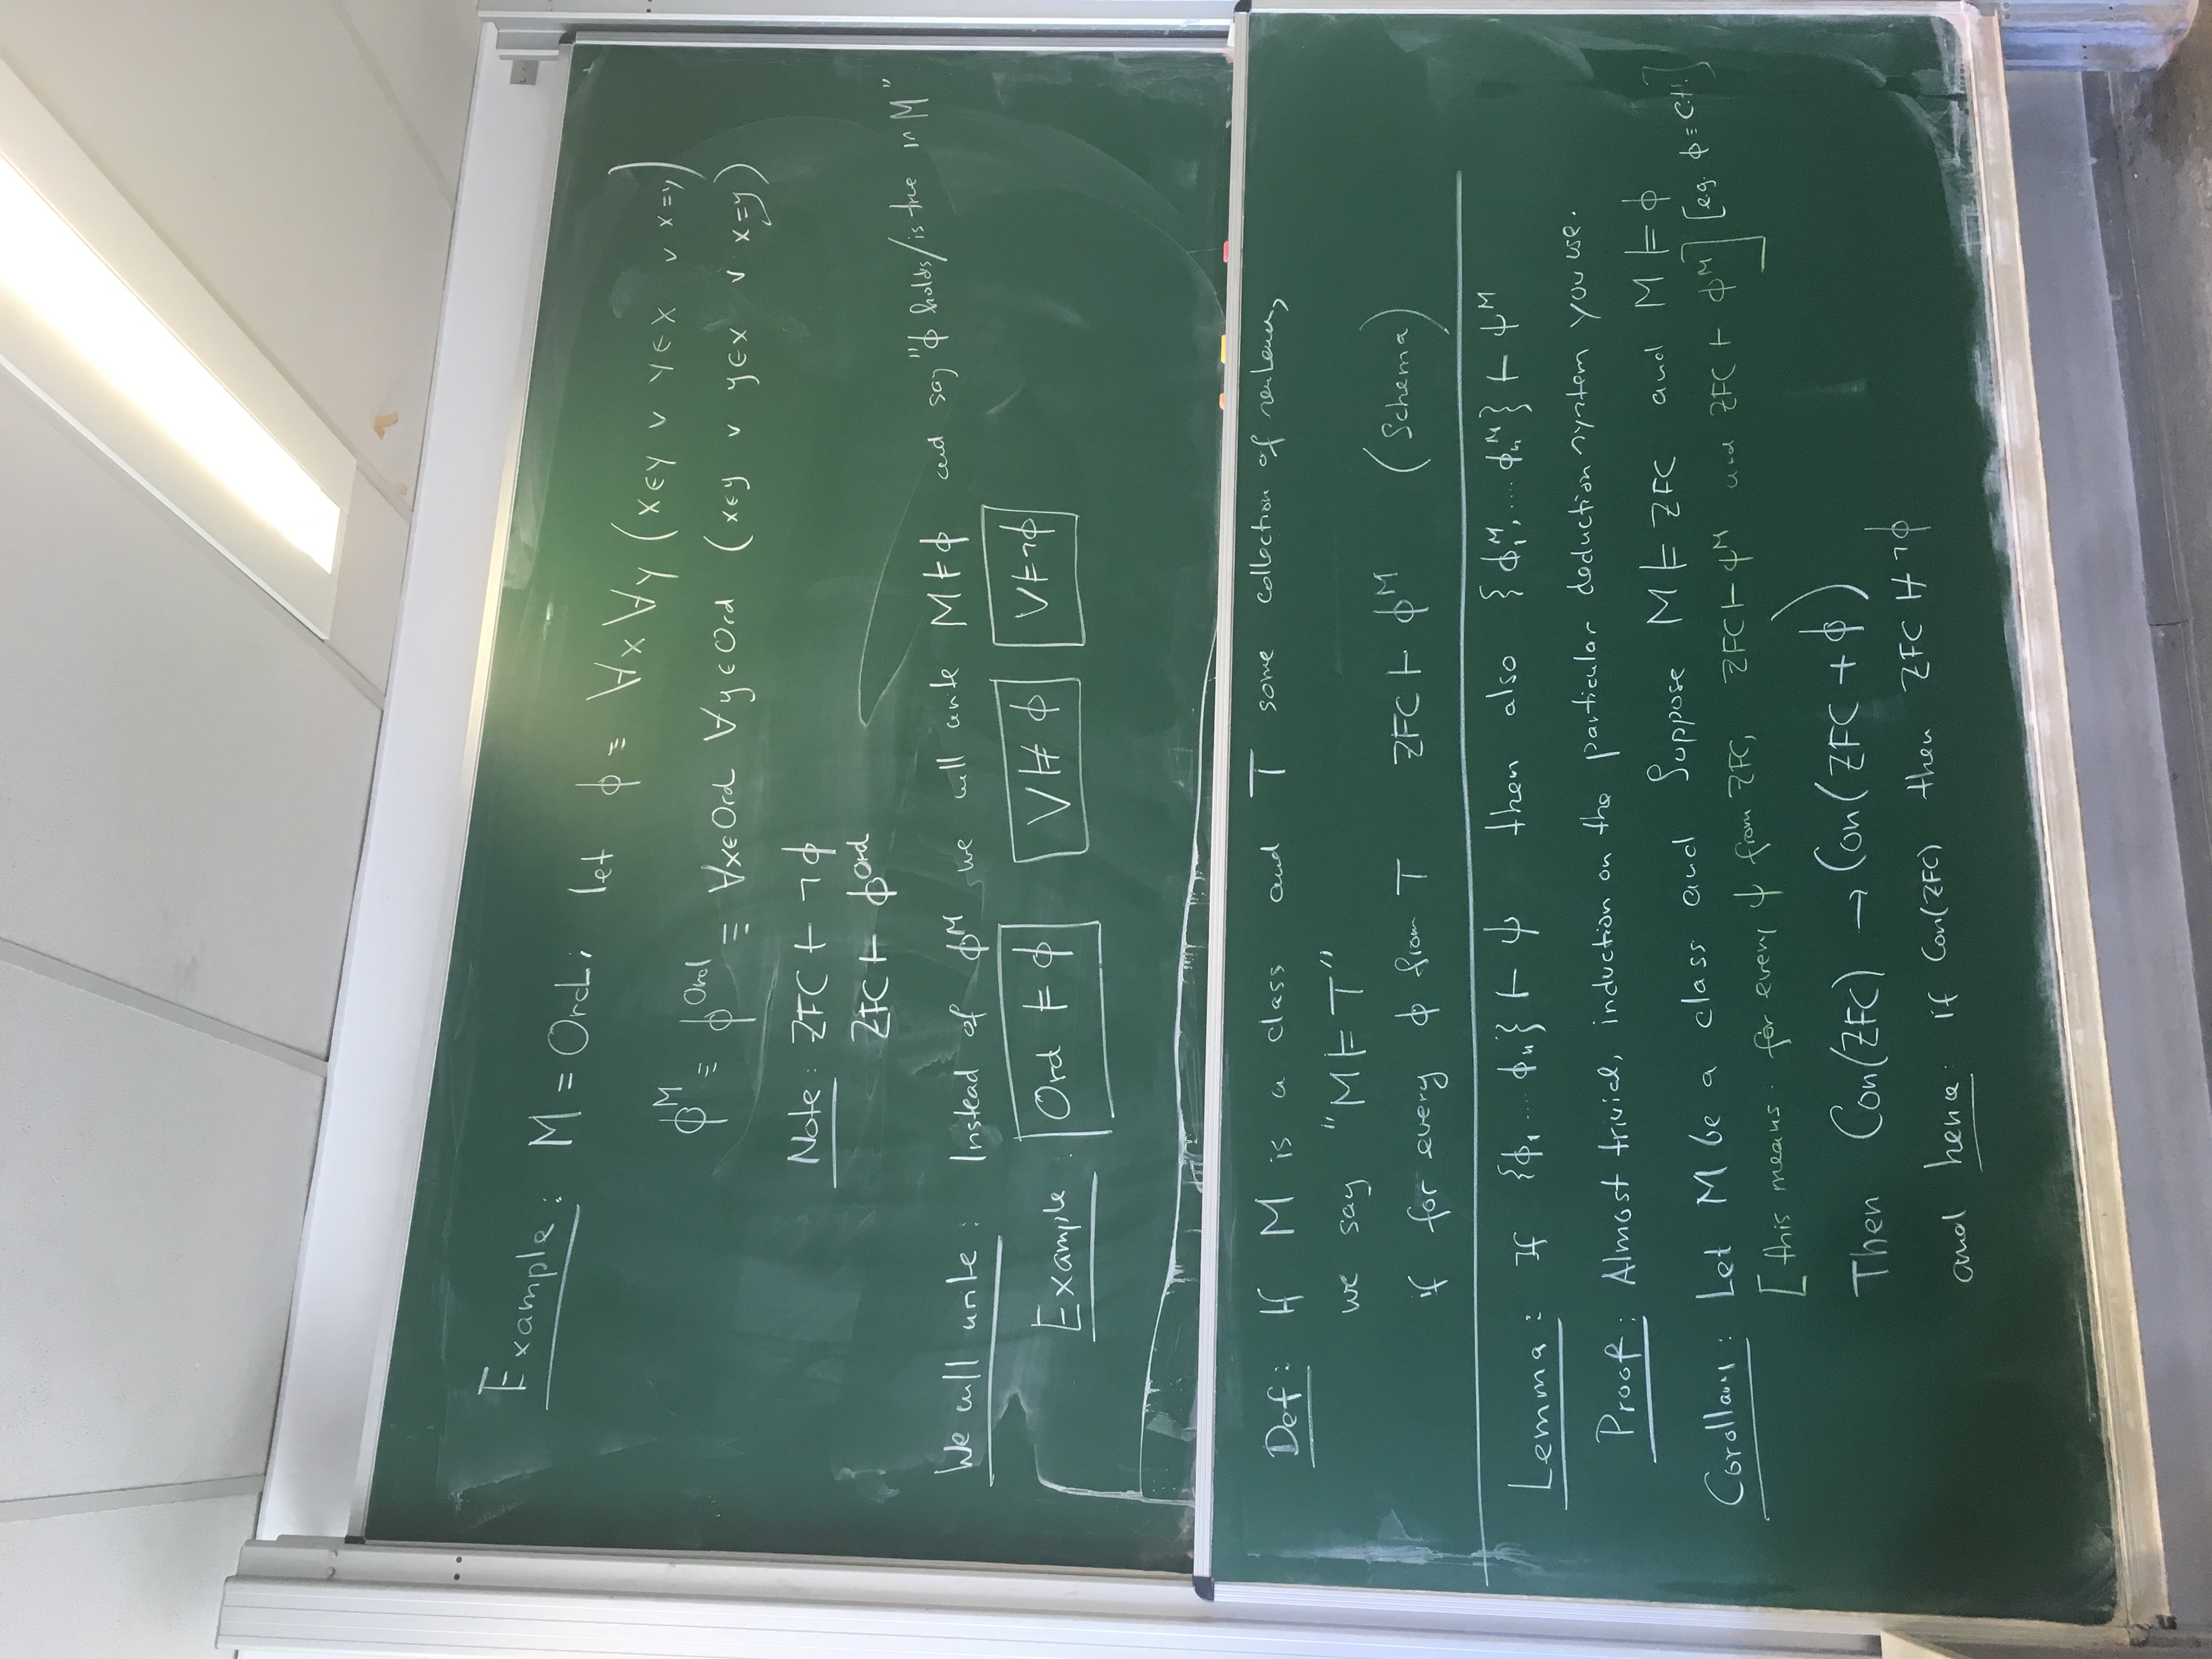 Example: M = Ord, let φ ≡ ∀x∀y (x∈y ∨ y∈x ∨ x=y)
φᴹ ≡ φᴼʳᵈ ≡ ∀x∈Ord ∀y∈Ord (x∈y ∨ y∈x ∨ x=y)
Note: ZFC ⊢ ¬φ
ZFC ⊢ φᴼʳᵈ
We will write: Instead of φᴹ we will write M ⊨ φ and say "φ holds/is true in M"
Example: Ord ⊨ φ V ⊭ φ V ⊨ ¬φ
Def: If M is a class and T some collection of sentences,
we say "M ⊨ T"
if for every φ from T ZFC ⊢ φᴹ (Schema)
Lemma: If {φ₁ .... φₙ} ⊢ ψ then also {φ₁ᴹ, .... φₙᴹ} ⊢ ψᴹ
Proof: Almost trivial, induction on the particular deduction system you use.
Corollary: Let M be a class and Suppose M ⊨ ZFC and M ⊨ φ
[this means: for every ψ from ZFC, ZFC ⊢ ψᴹ and ZFC ⊢ φᴹ] [eg. φ = CH]
Then Con(ZFC) → Con(ZFC + φ)
and hence: if Con(ZFC) then ZFC ⊬ ¬φ